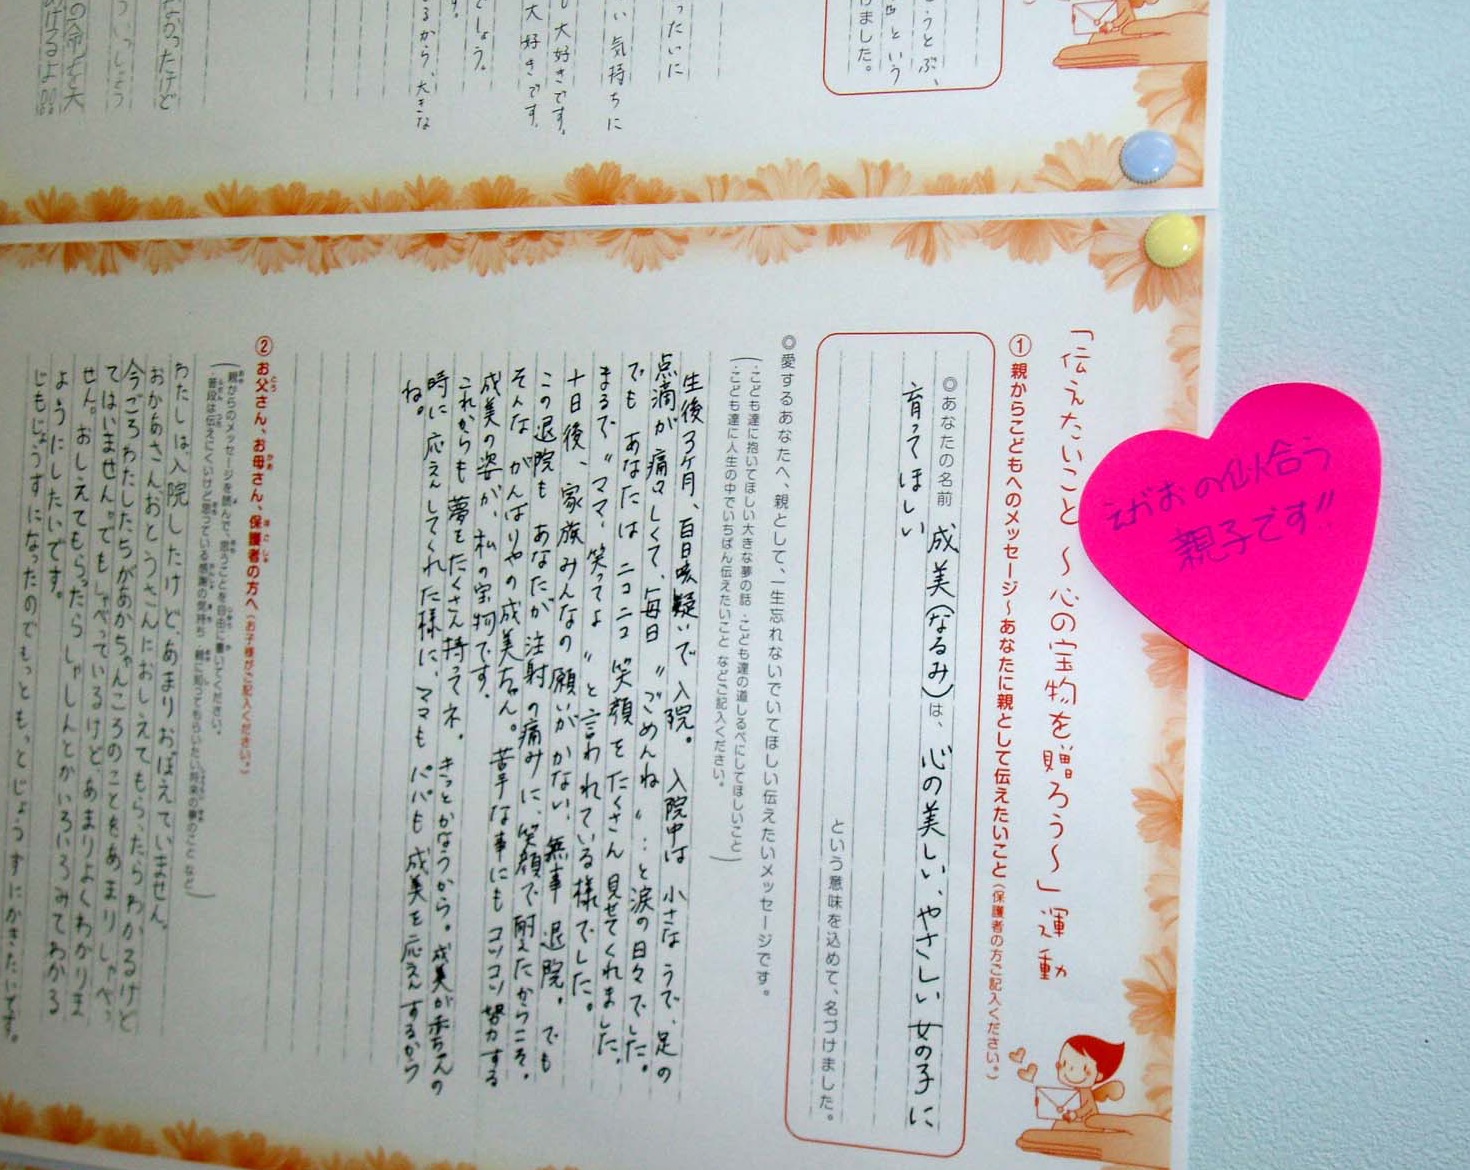 うとぶ、
という
けました。
ったいに
い気持ちに
も大好きです。
大好きです。
でしょう。
す。
るから、大きな
なかったけど
ういっしょう
の命を大
あげるよ
「伝えたいこと ～心の宝物を贈ろう～」運動
① 親からこどもへのメッセージ～あなたに親として伝えたいこと（保護者の方ご記入ください。）
◎あなたの名前 成美(なるみ)は、心の美しい、やさしい女の子に
育ってほしい
という意味を込めて、名づけました。
◎愛するあなたへ、親として、一生忘れないでいてほしい伝えたいメッセージです。
（・こども達に抱いてほしい大きな夢の話 ・こども達の道しるべにしてほしいこと
・こども達に人生の中でいちばん伝えたいこと などご記入ください。）
生後3ヶ月、百日咳疑いで入院。入院中は 小さなうで、足の
点滴が痛々しくて、毎日 〝ごめんね〟…と涙の日々でした。
でも あなたは ニコニコ 笑顔をたくさん見せてくれました。
まるで〝ママ、笑ってよ〟と言われている様でした。
十日後、家族みんなの願いがかない、無事 退院。でも
この退院も あなたが注射の痛みに、笑顔で耐えたからこそ。
そんな がんばりやの成美ちゃん。苦手な事にもコツコツ努力する
成美の姿が、私の宝物です。
これからも夢をたくさん持ってネ。きっとかなうから。成美が赤ちゃんの
時に応えんしてくれた様に、ママもパパも成美を応えんするから
ね。
② お父さん、お母さん、保護者の方へ（お子様がご記入ください。）
（親からのメッセージを読んで、思うことを自由に書いてください。
普段は伝えにくいけど思っている感謝の気持ち 親に知ってもらいたい将来の夢のこと など）
わたしは、入院したけど、あまりおぼえていません。
おかあさんおとうさんにおしえてもらったらわかるけど
今ごろわたしたちがあかちゃんころのことをあまりしゃべっ
てはいません。でもしゃべっているけど、あまりよくわかりま
せん。おしえてもらったらしゃしんとかいろいろみてわかる
ようにしたいです。
じもじょうずになったのでもっともっとじょうずにかきたいです。
えがおの似合う
親子です!!